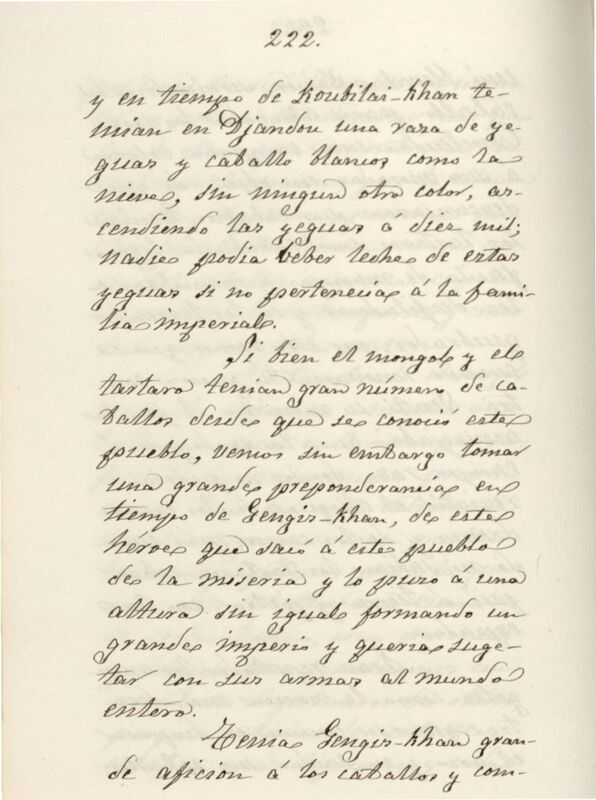 222.
y en tiempo de Koubilai-Khan te-
nian en Djandou una raza de ye-
guas y caballo blancos como la
nieve, sin ningun otro color, as-
cendiendo las yeguas á diez mil;
nadie podia beber leche de estas
yeguas si no pertenecia á la fami-
lia imperial.
Si bien el mongol y el
tartaro tenian gran número de ca-
ballos desde que se conoció este
pueblo, vemos sin embargo tomar
una grande preponderancia en
tiempo de Gengis-Khan, de este
héroe que sacó á este pueblo
de la miseria y lo puso á una
altura sin igual formando un
grande imperio y queria suge-
tar con sus armas al mundo
entero.
Tenia Gengis-Khan gran-
de aficion á los caballos y com-